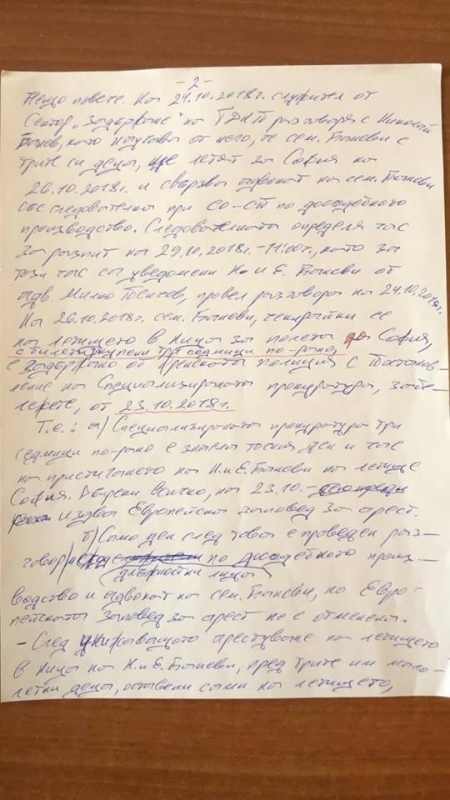 - 2 -
Нещо повече. На 24.10.2018г. служител от
Сектор „Задържане" на ГДНП разговаря с Николай
Банев, като научава от него, че сем. Баневи с
трите си деца, ще летят за София на
26.10.2018г. и свързва адвокат на сем. Баневи
със следователя при СО-СП по досъдебното
производство. Следователят определя час
за разпит на 29.10.2018г. - 11:00ч., като за
този час са уведомени Н. и Е. Баневи от
адв. Милко провел разговора на 24.10.2018г.
На 26.10.2018г. сем. Баневи, чекирайки се
на летището в Ница за полета до София,
с билети купени три седмици по-рано,
е задържано от Френската полиция с Постанов-
ление на Специализираната прокуратура, забе-
лежете, от 23.10.2018г.
Т.е.: а) Специализираната прокуратура три
седмици по-рано е знаела точния ден и час
на пристигането на Н. и Е. Баневи на летище
София. Въпреки всичко, на 23.10.
издава Европейска заповед за арест.
б) Само ден след това е проведен раз-
говор по досъдебното произ-
длъжностни лица
водство и адвокат на сем. Баневи, но Евро-
пейската заповед за арест не е отменена.
- След унизяващото арестуване на летището
в Ница на Н. и Е. Баневи, пред трите им мало-
летни деца, оставени сами на летището,